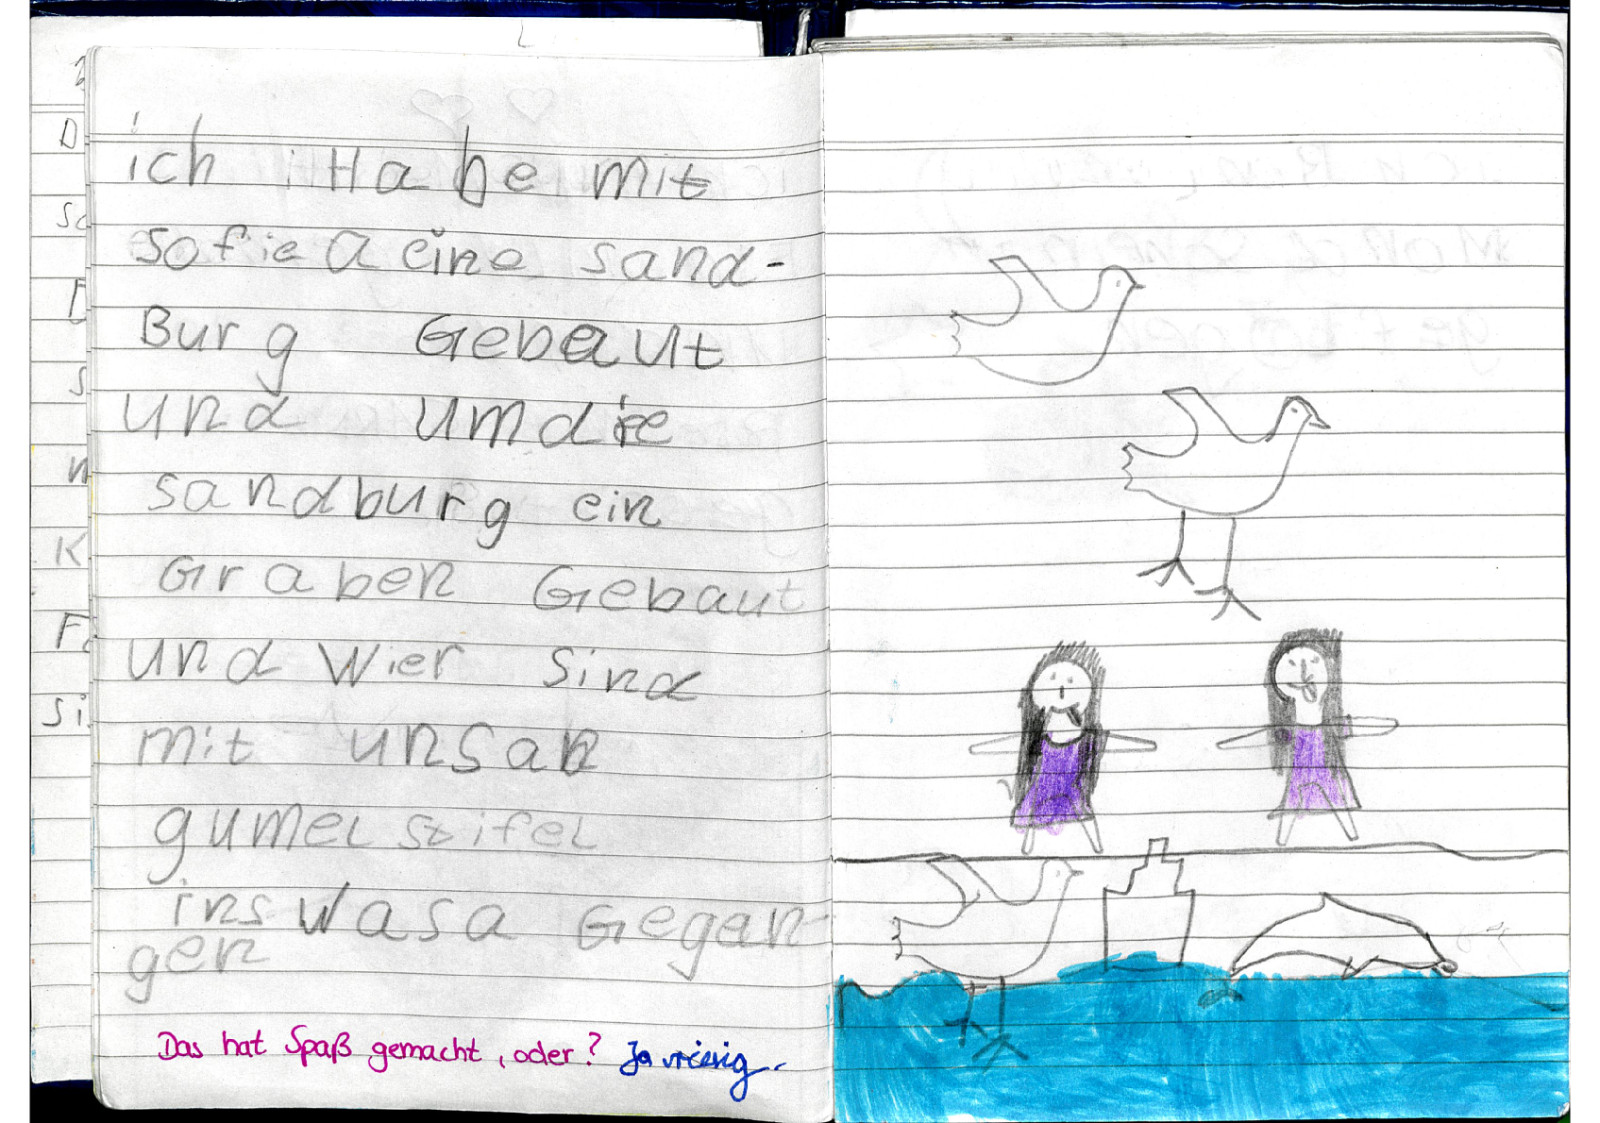 ich Habe mit
sofiea eine sand-
Burg Gebaut
und umdie
sandburg ein
Graben Gebaut
und Wier Sind
mit unsan
gumel stifel
ins Wasa Gegan-
gen
Das hat Spaß gemacht, oder? Ja